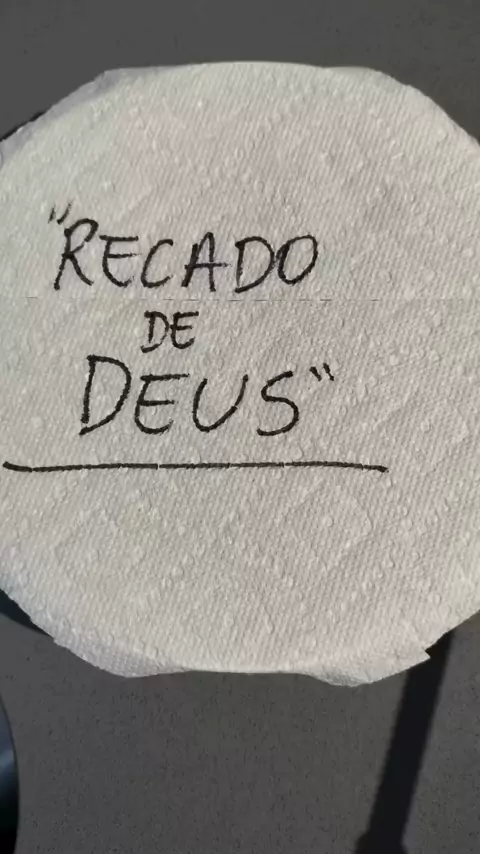 "RECADO
DE
DEUS"